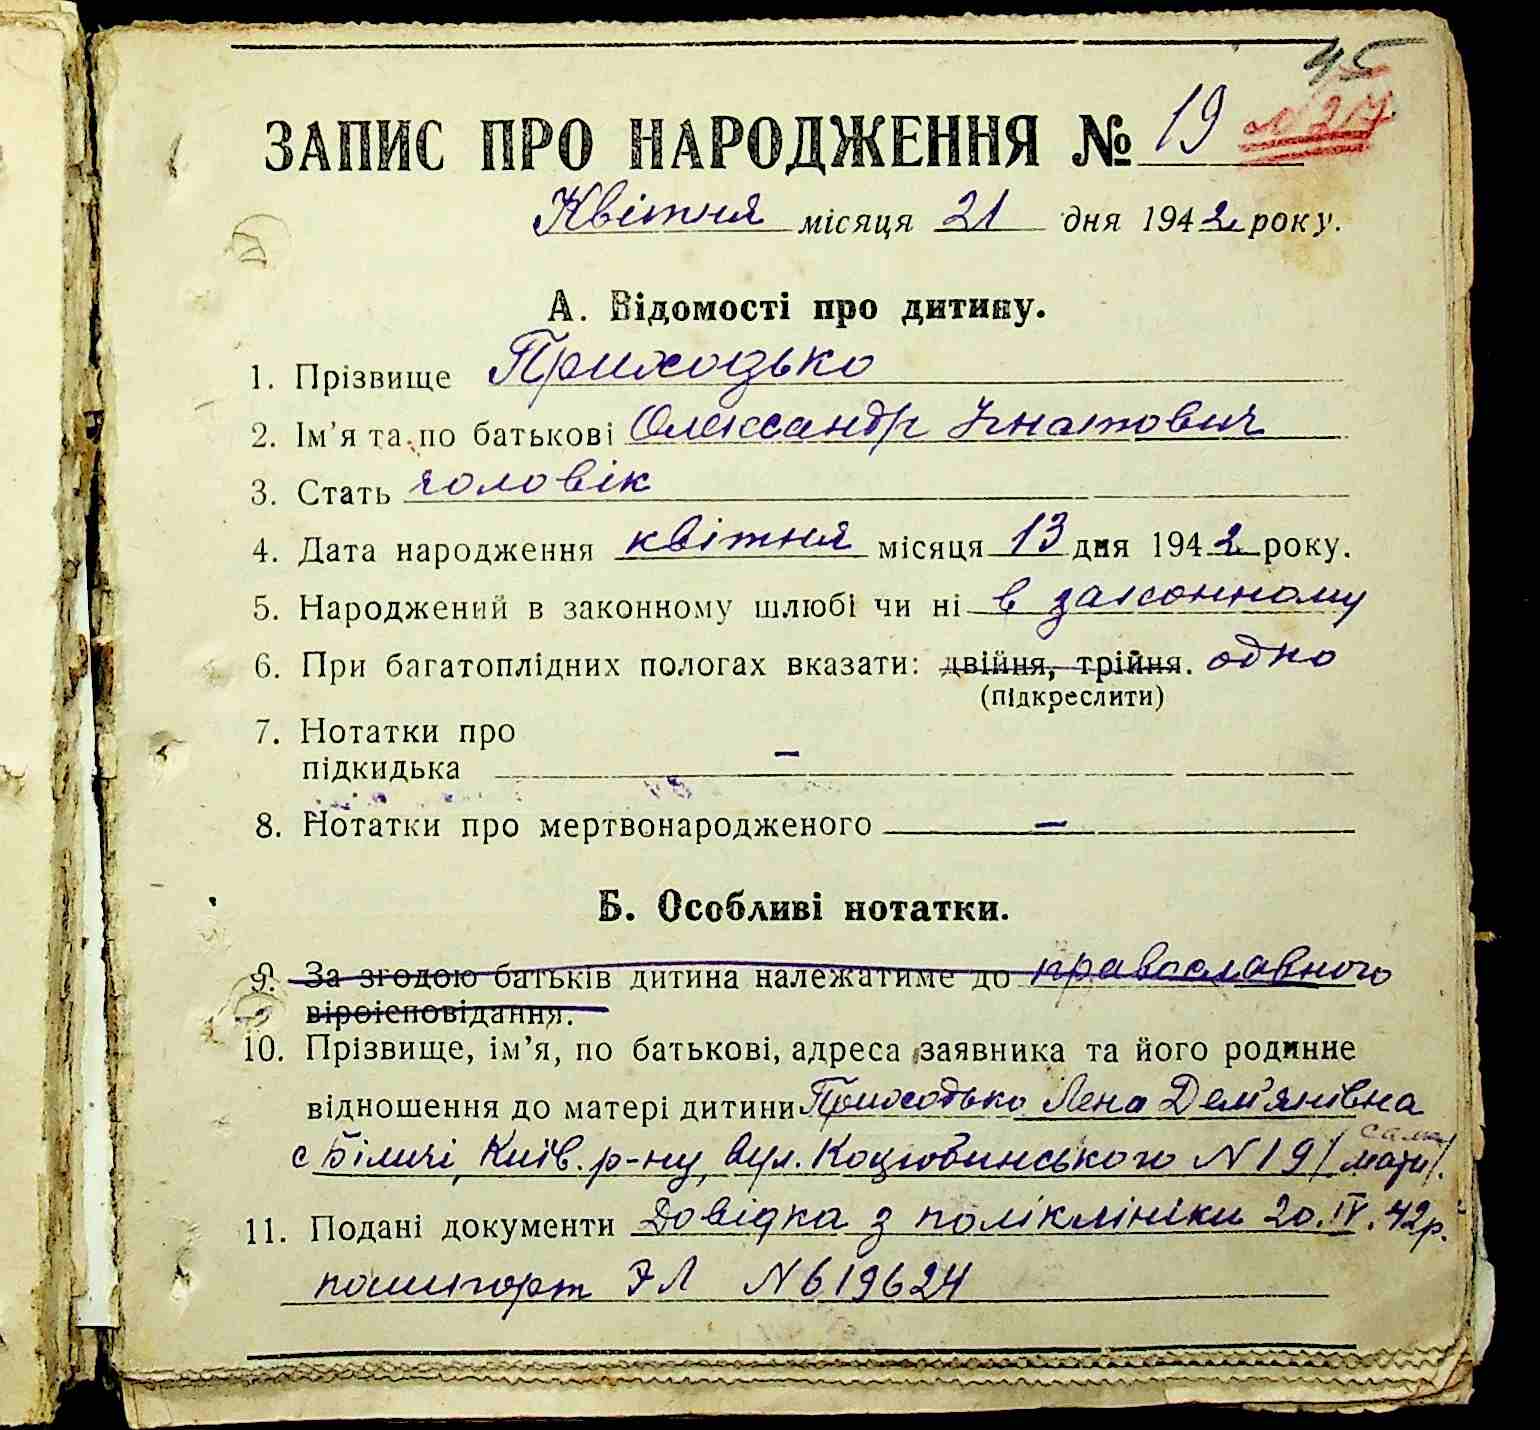 45
ЗАПИС ПРО НАРОДЖЕННЯ № 19 N 217
Квітня місяця 21 дня 1942 року.
А. Відомості про дитину.
1. Прізвище Приходько
2. Ім'я та по батькові Олександр Ігнатович
3. Стать чоловік
4. Дата народження квітня місяця 13 дня 1942 року.
5. Народжений в законному шлюбі чи ні в законному
6. При багатоплідних пологах вказати: двійня, трійня. одно
(підкреслити)
7. Нотатки про
підкидька –
8. Нотатки про мертвонародженого –
Б. Особливі нотатки.
9. За згодою батьків дитина належатиме до православного
віроісповідання.
10. Прізвище, ім'я, по батькові, адреса заявника та його родинне
відношення до матері дитини Приходько Лена Дем'янівна
с Біличі, Київ. р-ну, вул. Коцюбинського N 19 /сама мати/.
11. Подані документи Довідка з поліклініки 20.IV.42р.
пашпорт ЭЛ N 619624